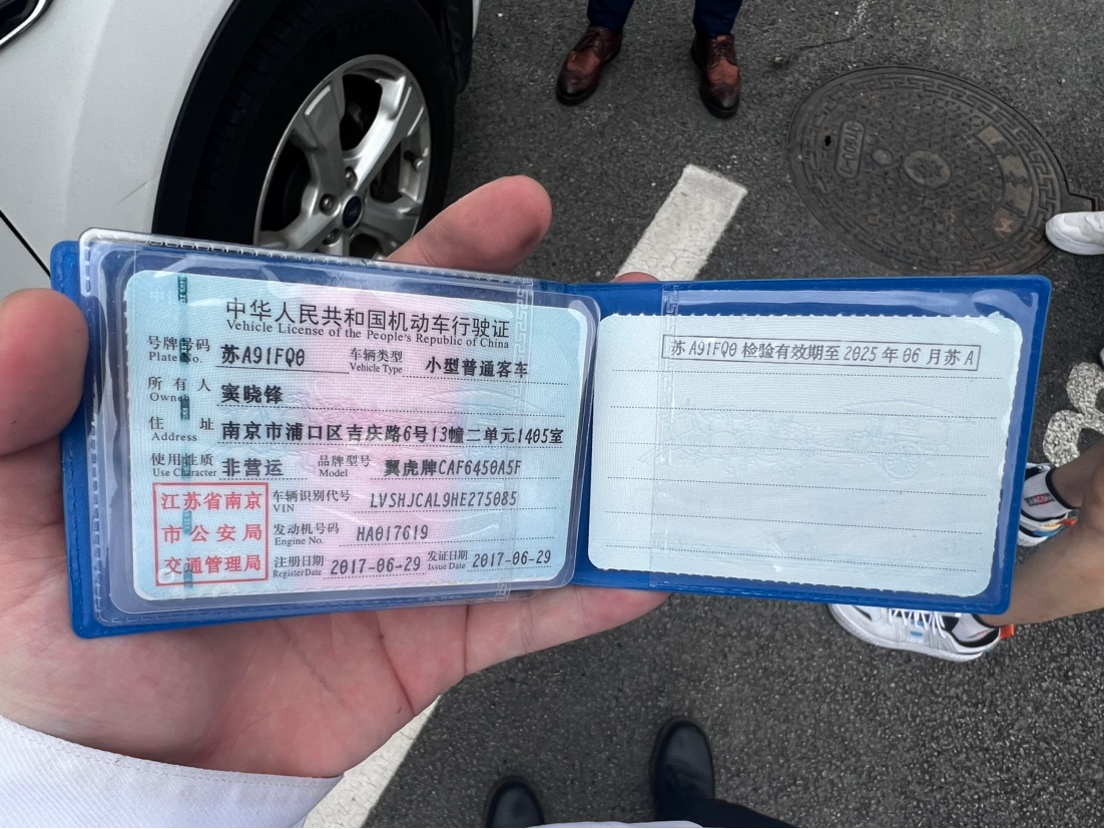 中华人民共和国机动车行驶证
Vehicle License of the People's Republic of China
号牌号码 苏A91FQ0 车辆类型 小型普通客车
Plate No. Vehicle Type
所有人 窦晓锋
Owner
住址 南京市浦口区吉庆路6号13幢二单元1405室
Address
使用性质 非营运 品牌型号 翼虎牌CAF6450A5F
Use Character Model
江苏省南京
市公安局
交通管理局
车辆识别代号 LVSHJCAL9HE275085
VIN
发动机号码 HA017619
Engine No.
注册日期 2017-06-29 发证日期 2017-06-29
Register Date Issue Date
苏A91FQ0 检验有效期至 2025 年 06 月苏A